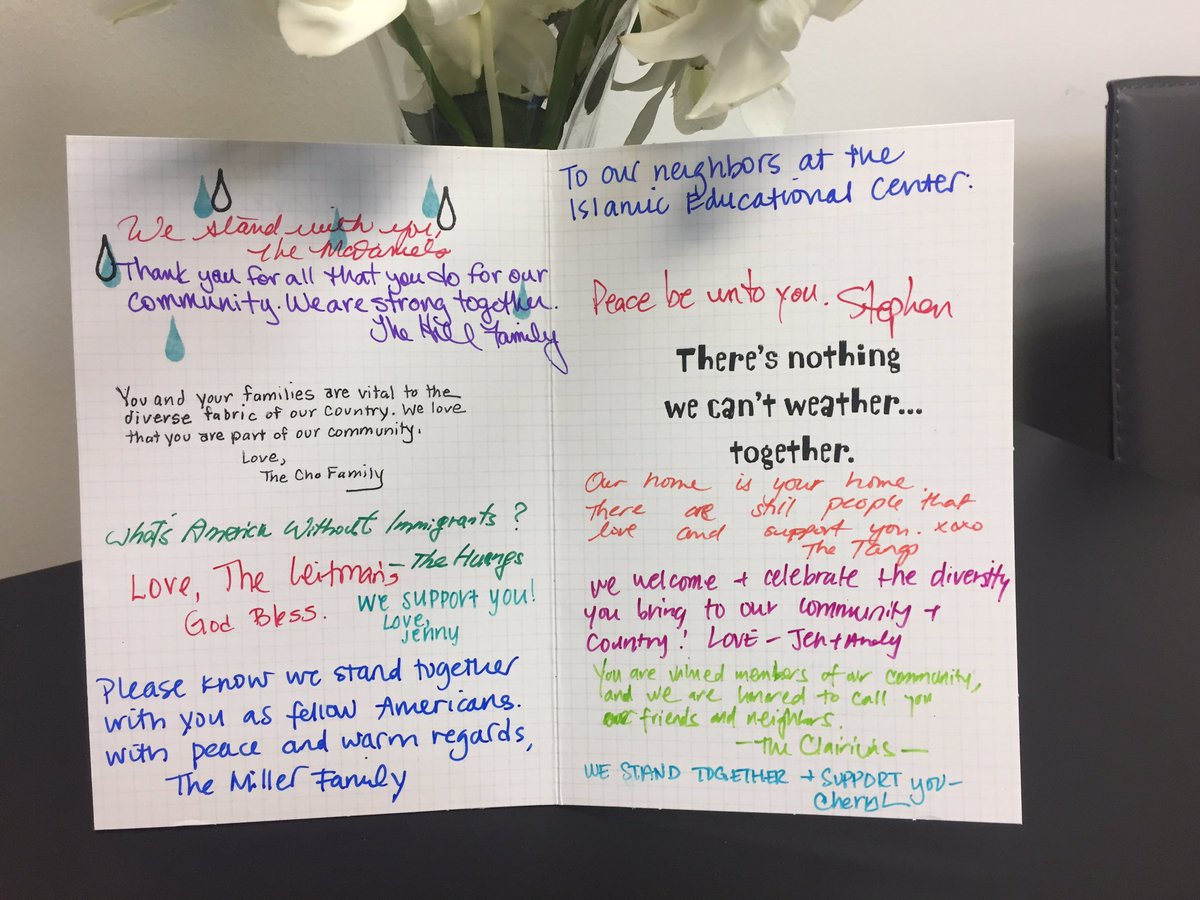 We stand with you,
The McDaniels
Thank you for all that you do for our
community. We are strong together.
The Hill Family
You and your families are vital to the
diverse fabric of our country. We love
that you are part of our community.
Love,
The Cho Family
What's America Without Immigrants?
- The Huangs
Love, The Leitmans
God Bless.
We support you!
Love,
Jenny
Please know we stand together
with you as fellow Americans.
with peace and warm regards,
The Miller Family
To our neighbors at the
Islamic Educational Center:
Peace be unto you. Stephen
There's nothing
we can't weather...
together.
Our home is your home.
There are still people that
love and support you. xoxo
The Tangs
We welcome + celebrate the diversity
you bring to our community +
country! LOVE - Jen + Andy
You are valued members of our community,
and we are honored to call you
our friends and neighbors.
- The
WE STAND TOGETHER + SUPPORT YOU -
Cheryl L